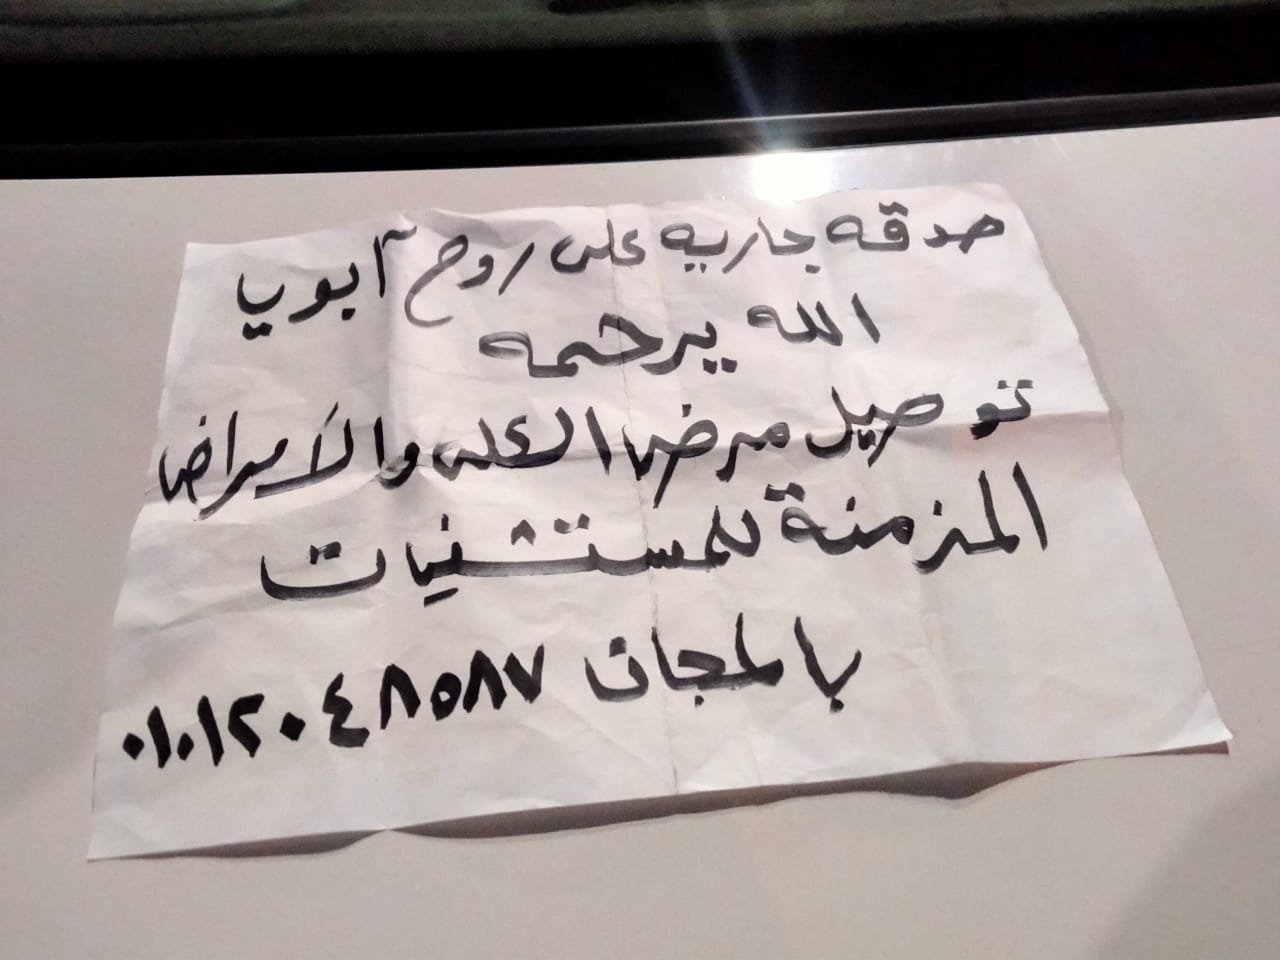 صدقه جاريه على روح أبويا
الله يرحمه
توصيل مرضا الكلى والأمراض
المزمنة للمستشفيات
بالمجان ٠١٠١٢٠٤٨٥٨٧